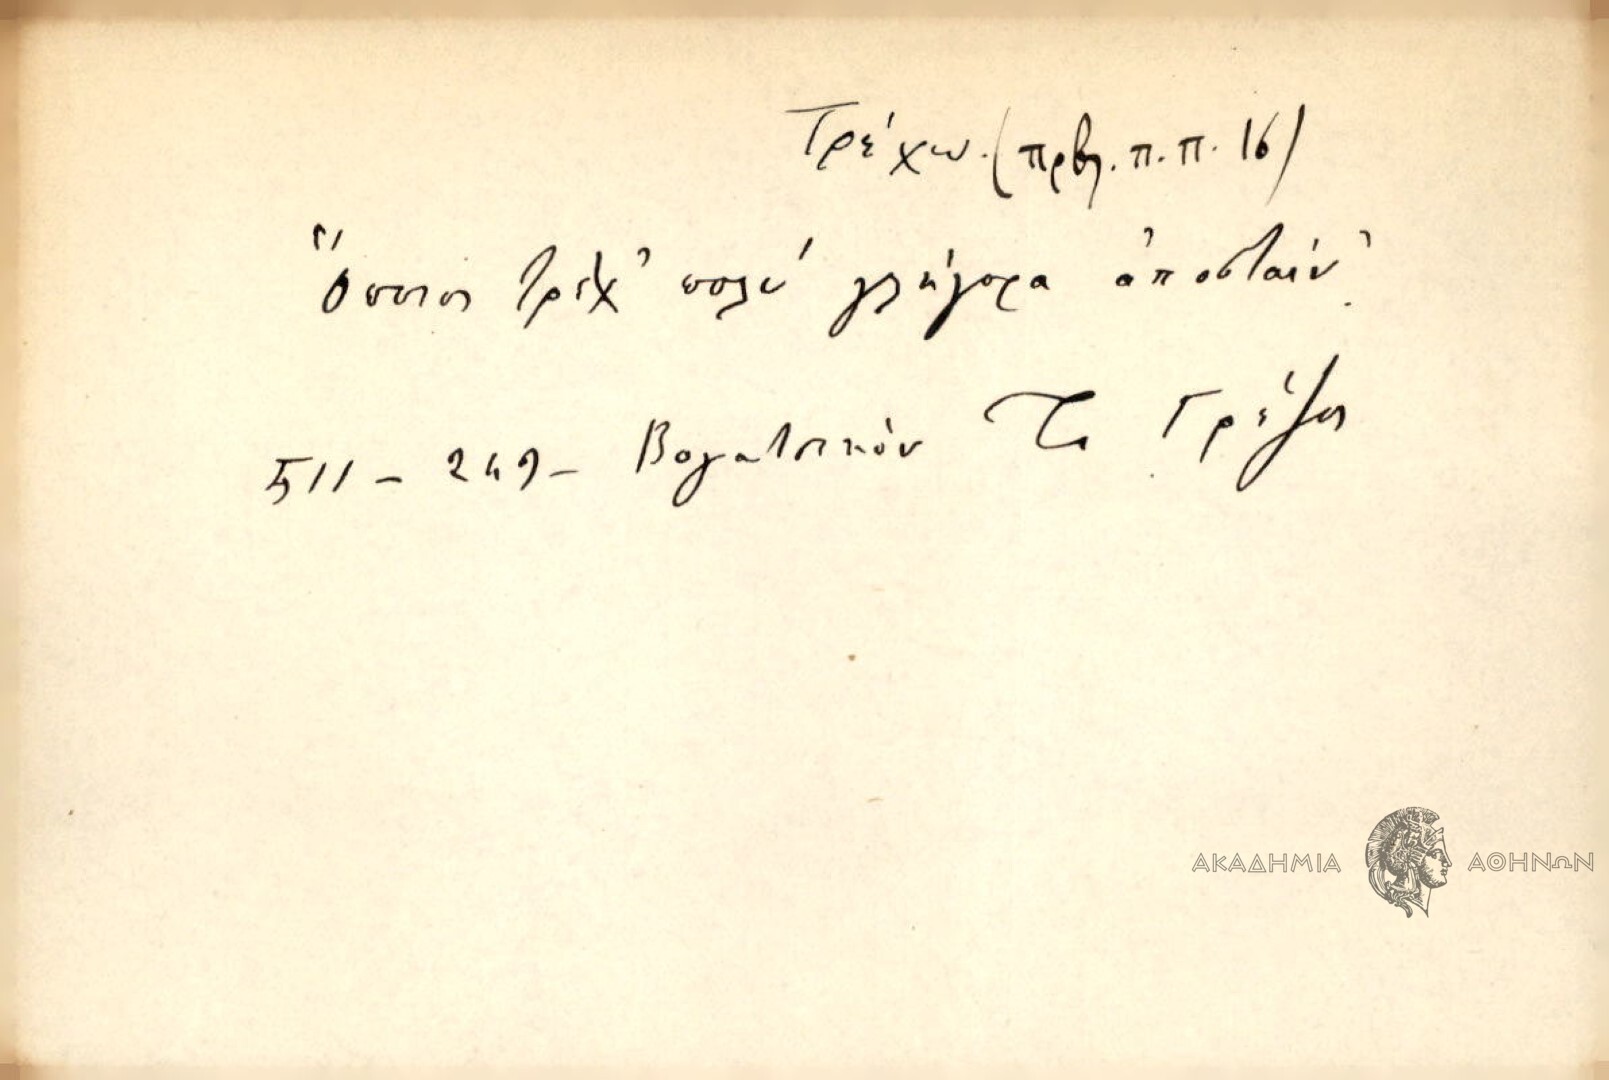 Τρέχω. (πρβλ. π. π. 16)
Ὅποιος τρέχ' πολύ γλήγορα ἀποσταίν'.
511 - 249 - Βογατσικόν Τσ Γρέζος
ΑΚΑΔΗΜΙΑ ΑΘΗΝΩΝ